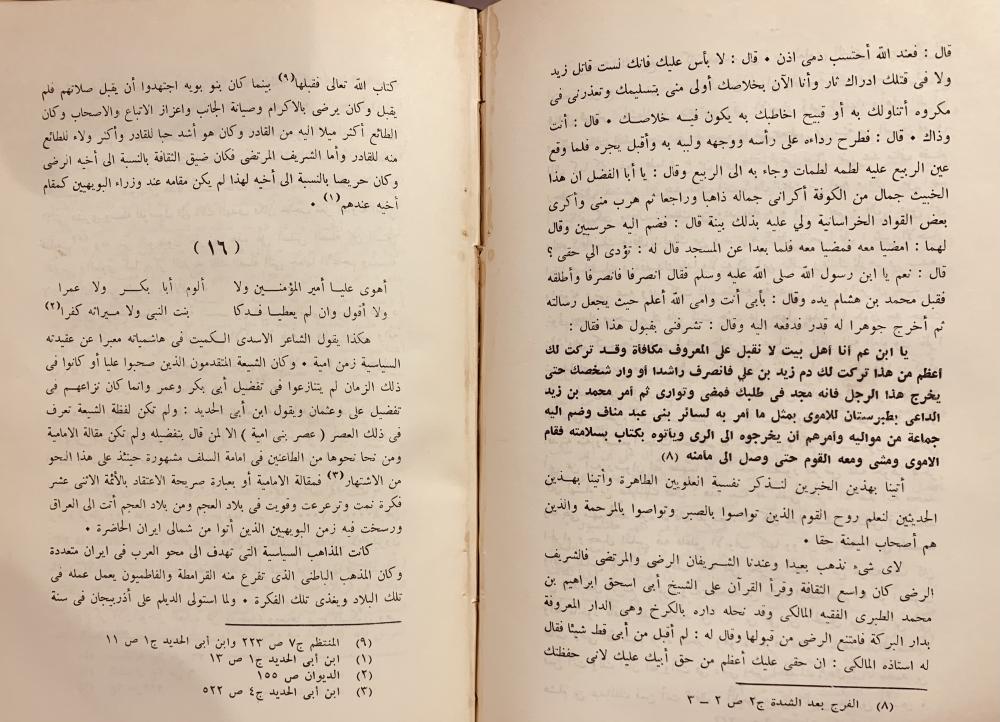 قال : فعند الله أحتسب دمى اذن • قال : لا بأس عليك فانك لست قاتل زيد
ولا فى قتلك ادراك ثار وأنا الآن بخلاصك أولى منى بتسليمك وتعذرنى فى
مكروه أتناولك به أو قبيح اخاطبك به يكون فيه خلاصك • قال : أنت
وذاك • قال : فطرح رداءه على رأسه ووجهه ولببه به وأقبل يجره فلما وقع
عين الربيع عليه لطمه لطمات وجاء به الى الربيع وقال : يا أبا الفضل ان هذا
الخبيث جمال من الكوفة أكرانى جماله ذاهبا وراجعا ثم هرب منى وأكرى
بعض القواد الخراسانية ولي عليه بذلك بينة قال : فضم اليه حرسيين وقال
لهما : امضيا معه فمضيا معه فلما بعدا عن المسجد قال له : تؤدى الي حقى ؟
قال : نعم يا ابن رسول الله صلى الله عليه وسلم فقال انصرفا فانصرفا وأطلقه
فقبل محمد بن هشام يده وقال : بأبى أنت وامى الله أعلم حيث يجعل رسالته
ثم أخرج جوهرا له قدر فدفعه اليه وقال : تشرفنى بقبول هذا فقال :
يا ابن عم أنا أهل بيت لا نقبل على المعروف مكافأة وقد تركت لك
أعظم من هذا تركت لك دم زيد بن علي فانصرف راشدا أو وار شخصك حتى
يخرج هذا الرجل فانه مجد فى طلبك فمضى وتوارى ثم أمر محمد بن زيد
الداعى بطبرستان للاموى بمثل ما أمر به لسائر بنى عبد مناف وضم اليه
جماعة من مواليه وأمرهم أن يخرجوه الى الرى ويأتوه بكتاب بسلامته فقام
الاموى ومشى ومعه القوم حتى وصل الى مأمنه (٨)
أتينا بهذين الخبرين لنذكر نفسية العلويين الطاهرة وأتينا بهذين
الحديثين لنعلم روح القوم الذين تواصوا بالصبر وتواصوا بالمرحمة والذين
هم أصحاب الميمنة حقا •
لاى شىء نذهب بعيدا وعندنا الشريفان الرضى والمرتضى فالشريف
الرضى كان واسع الثقافة وقرأ القرآن على الشيخ أبى اسحق ابراهيم بن
محمد الطبرى الفقيه المالكى وقد نحله داره بالكرخ وهى الدار المعروفة
بدار البركة فامتنع الرضى من قبولها وقال له : لم أقبل من أبى قط شيئا فقال
له استاذه المالكى : ان حقى عليك أعظم من حق أبيك عليك لانى حفظتك
(٨) الفرج بعد الشدة ج٢ ص ٢ – ٣
كتاب الله تعالى فقبلها(٩) بينما كان بنو بويه اجتهدوا أن يقبل صلاتهم فلم
يقبل وكان يرضى بالاكرام وصيانة الجانب واعزاز الاتباع والاصحاب وكان
الطائع أكثر ميلا اليه من القادر وكان هو أشد حبا للقادر وأكثر ولاء للطائع
منه للقادر وأما الشريف المرتضى فكان ضيق الثقافة بالنسبة الى أخيه الرضى
وكان حريصا بالنسبة الى أخيه لهذا لم يكن مقامه عند وزراء البويهيين كمقام
أخيه عندهم(١) •
(١٦)
أهوى عليا أمير المؤمنين ولا ألوم أبا بكر ولا عمرا
ولا أقول وان لم يعطيا فدكا بنت النبى ولا ميراثه كفرا(٢)
هكذا يقول الشاعر الاسدى الكميت فى هاشمياته معبرا عن عقيدته
السياسية زمن امية • وكان الشيعة المتقدمون الذين صحبوا عليا أو كانوا فى
ذلك الزمان لم يتنازعوا فى تفضيل أبى بكر وعمر وانما كان نزاعهم فى
تفضيل على وعثمان ويقول ابن أبى الحديد : ولم تكن لفظة الشيعة تعرف
فى ذلك العصر ( عصر بنى امية ) الا لمن قال بتفضيله ولم تكن مقالة الامامية
ومن نحا نحوها من الطاعنين فى امامة السلف مشهورة حينئذ على هذا النحو
من الاشتهار(٣) فمقالة الامامية أو بعبارة صريحة الاعتقاد بالأئمة الاثنى عشر
فكرة نمت وترعرعت وقويت فى بلاد العجم ومن بلاد العجم أتت الى العراق
ورسخت فيه زمن البويهيين الذين أتوا من شمالى ايران الحاضرة •
كانت المذاهب السياسية التى تهدف الى محو العرب فى ايران متعددة
وكان المذهب الباطنى الذى تفرع منه القرامطة والفاطميون يعمل عمله فى
تلك البلاد ويغذى تلك الفكرة • ولما استولى الديلم على أذربيجان فى سنة
(٩) المنتظم ج٧ ص ٢٢٣ وابن أبى الحديد ج١ ص ١١
(١) ابن أبى الحديد ج١ ص ١٣
(٢) الديوان ص ١٥٥
(٣) ابن أبى الحديد ج٤ ص ٥٢٢